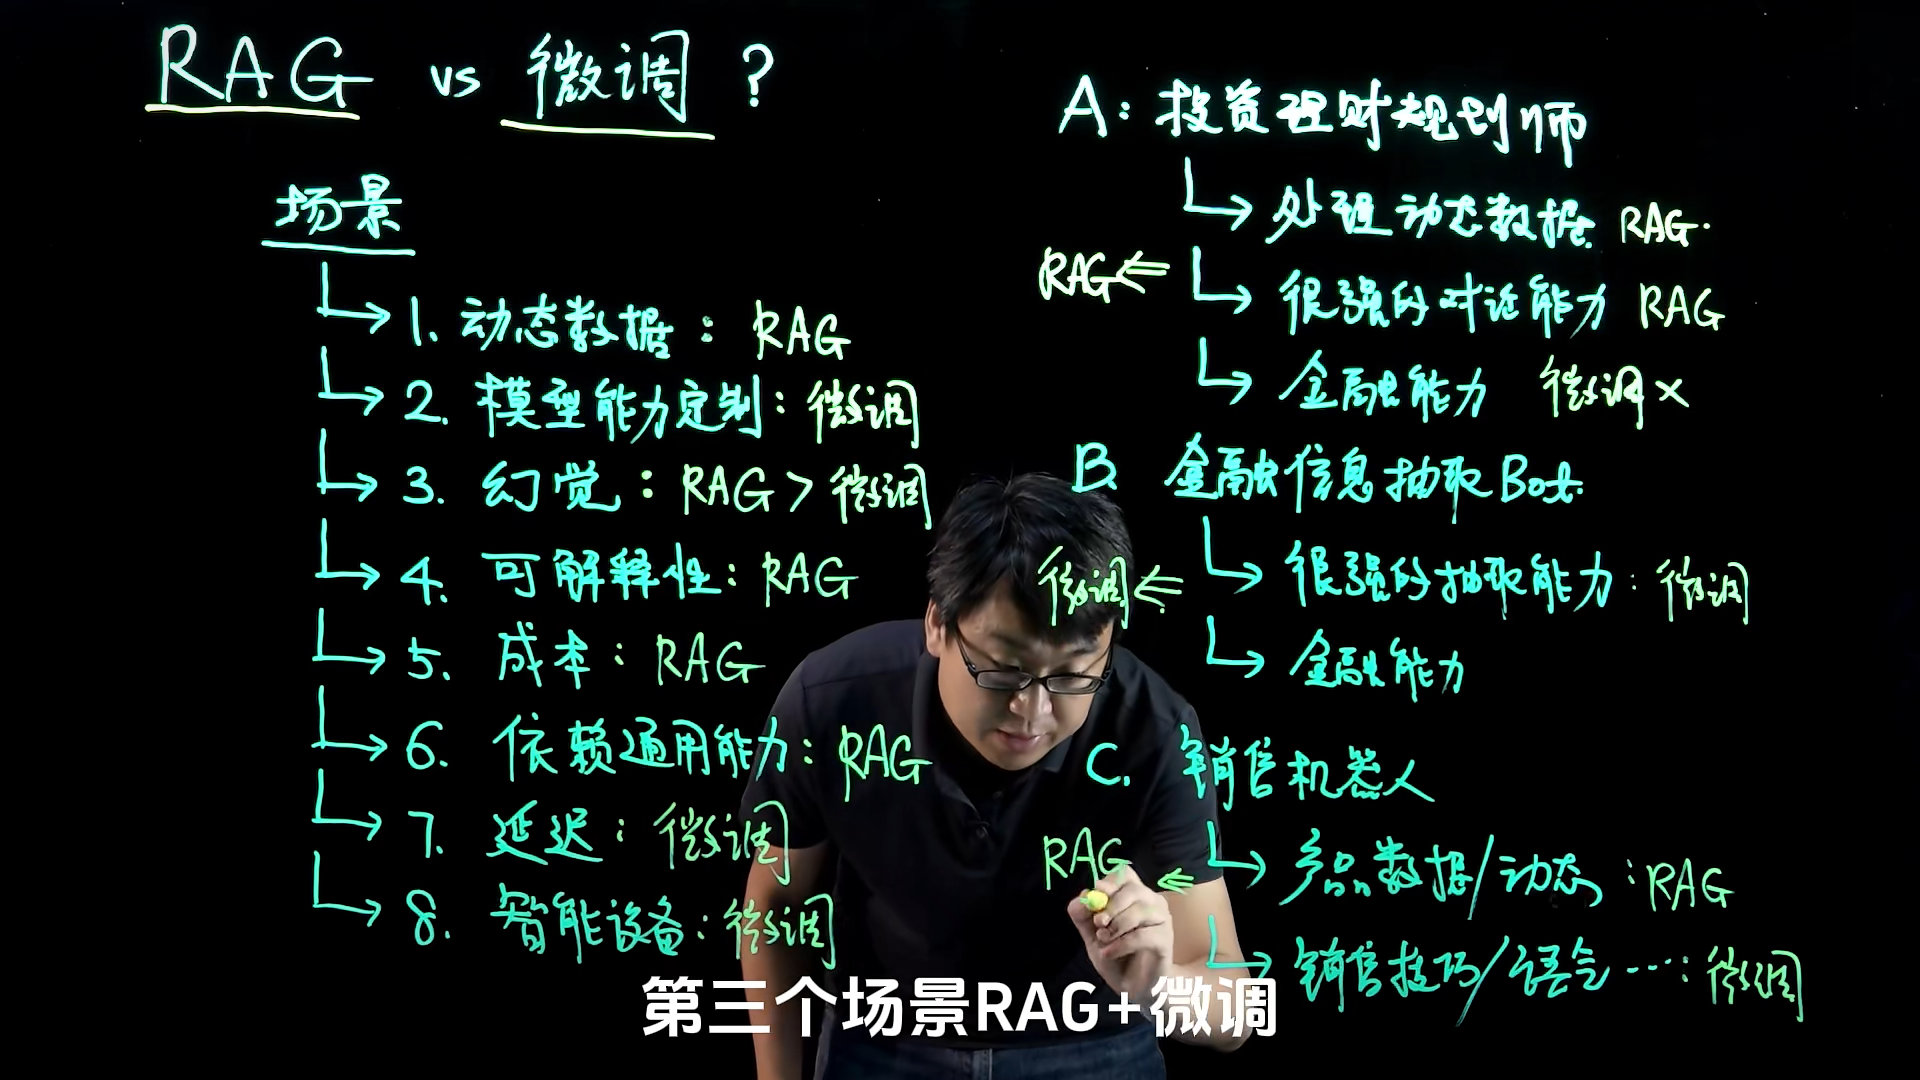 RAG vs 微调 ?
场景
1. 动态数据: RAG
2. 模型能力定制: 微调
3. 幻觉: RAG > 微调
4. 可解释性: RAG
5. 成本: RAG
6. 依赖通用能力: RAG
7. 延迟: 微调
8. 智能设备: 微调
A: 投资理财规划师
处理动态数据 RAG.
RAG ⇐
很强的对话能力 RAG
金融能力 微调 ×
B. 金融信息抽取Bot.
很强的抽取能力: 微调
微调 ⇐
金融能力
C. 销售机器人
产品数据/动态: RAG
RAG ⇐
销售技巧/语气…: 微调
第三个场景RAG+微调